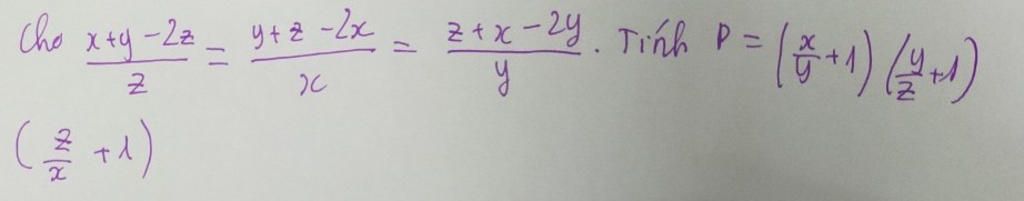 Cho \frac{x+y-2z}{z} = \frac{y+z-2x}{x} = \frac{z+x-2y}{y}. Tính P = (\frac{x}{y}+1)(\frac{y}{z}+1)
(\frac{z}{x}+1)